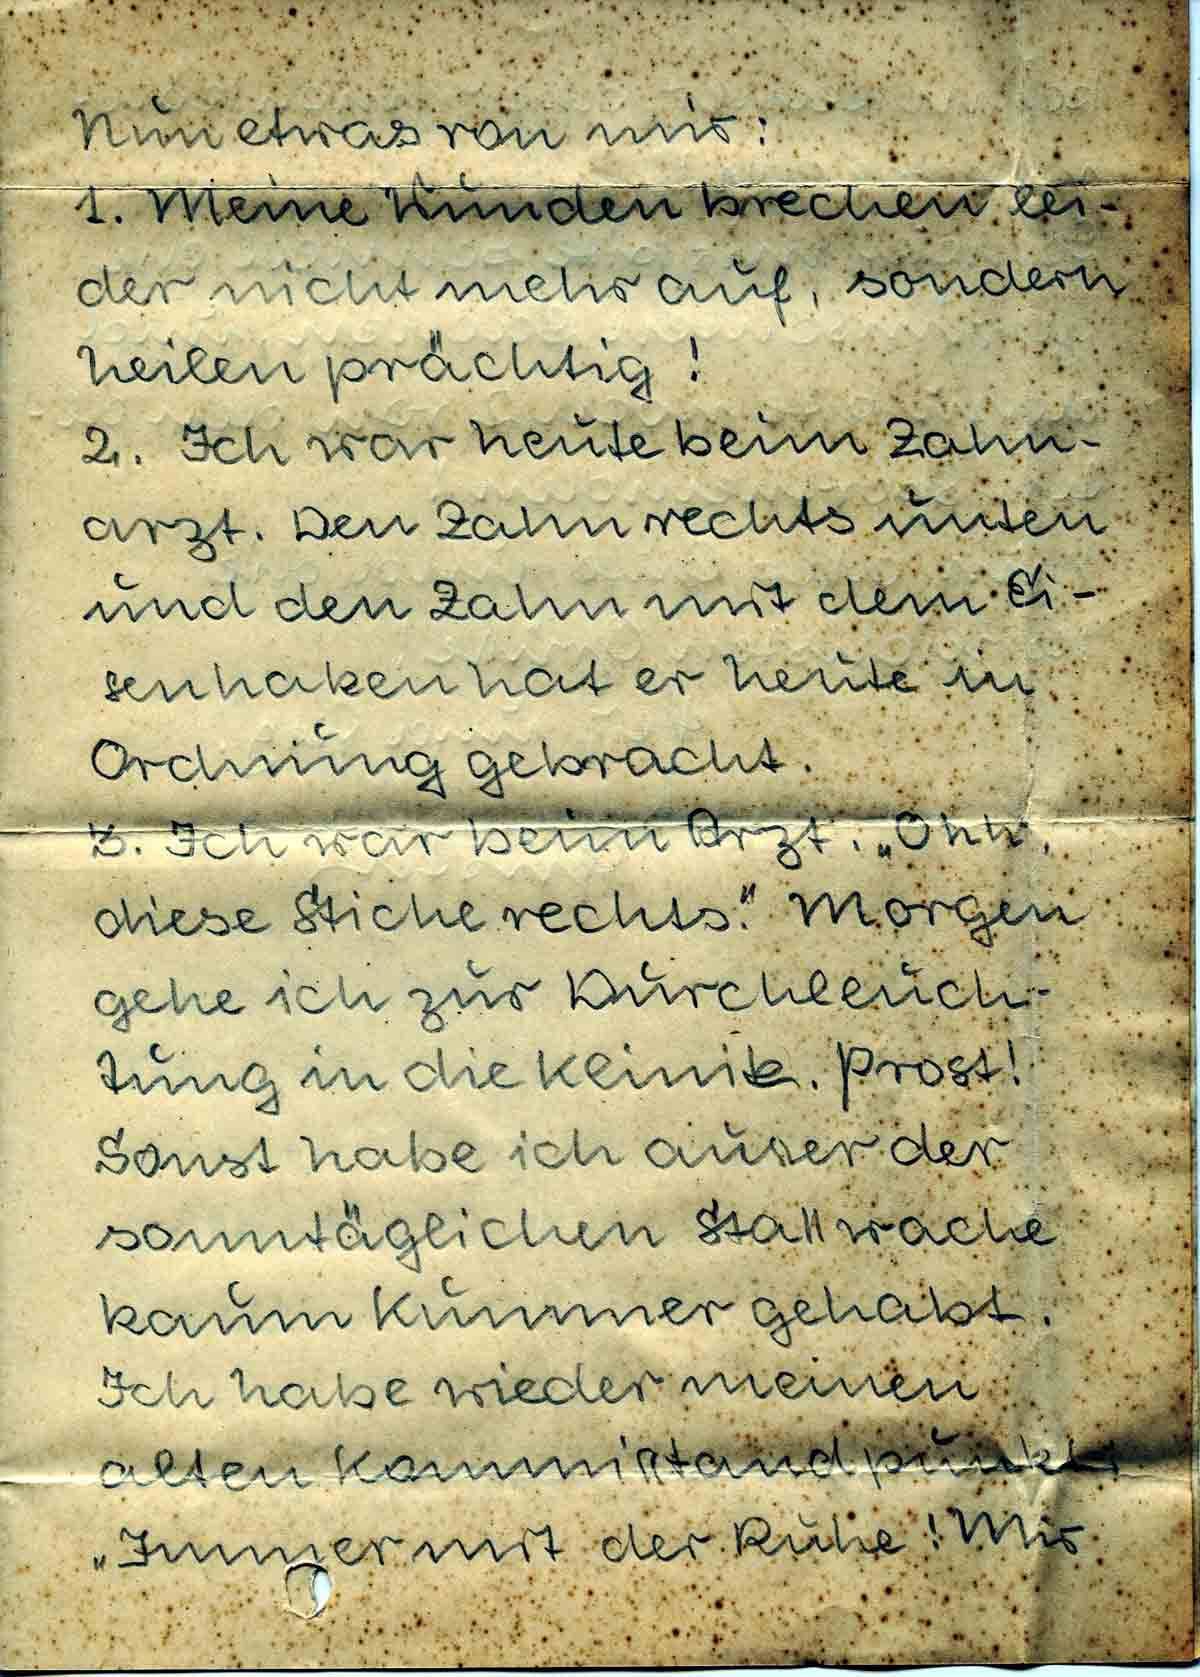 Nun etwas von mir:
1. Meine Wunden brechen lei-
der nicht mehr auf, sondern
heilen prächtig!
2. Ich war heute beim Zahn-
arzt. Den Zahn rechts unten
und den Zahn mit dem Ei-
senhaken hat er heute in
Ordnung gebracht.
3. Ich war beim Arzt. „Ohh,
diese Stiche rechts." Morgen
gehe ich zur Durchleuch-
tung in die Klinik. Prost!
Sonst habe ich ausser der
sonntäglichen Stallwache
kaum Kummer gehabt.
Ich habe wieder meinen
alten Kommißstandpunkt:
„Immer mit der Ruhe! Mir